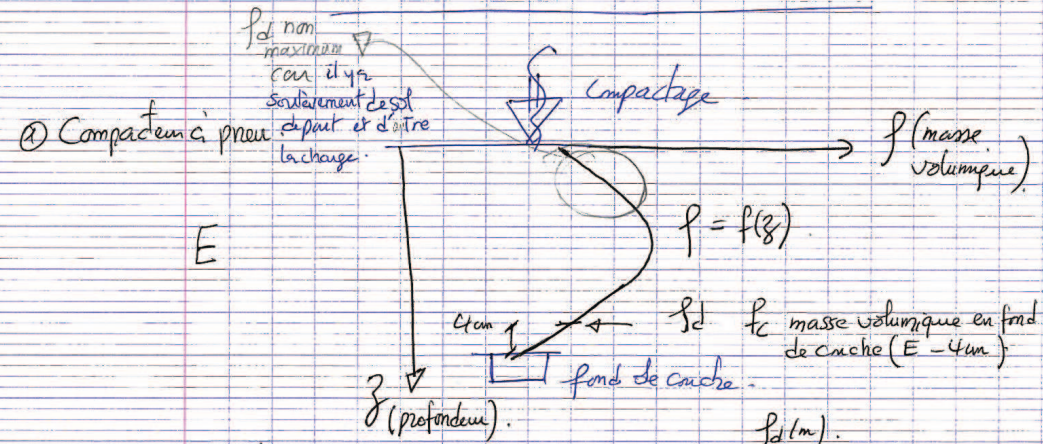 ρd non
maximum
car il y a
soulèvement de sol
départ et d'autre
la charge.
Compactage
ⓐ Compacteur à pneu
ρ (masse
volumique)
E
ρ = f(z)
4cm
ρd fc masse volumique en fond
de couche (E - 4cm)
fond de couche.
z (profondeur).
ρd (m).